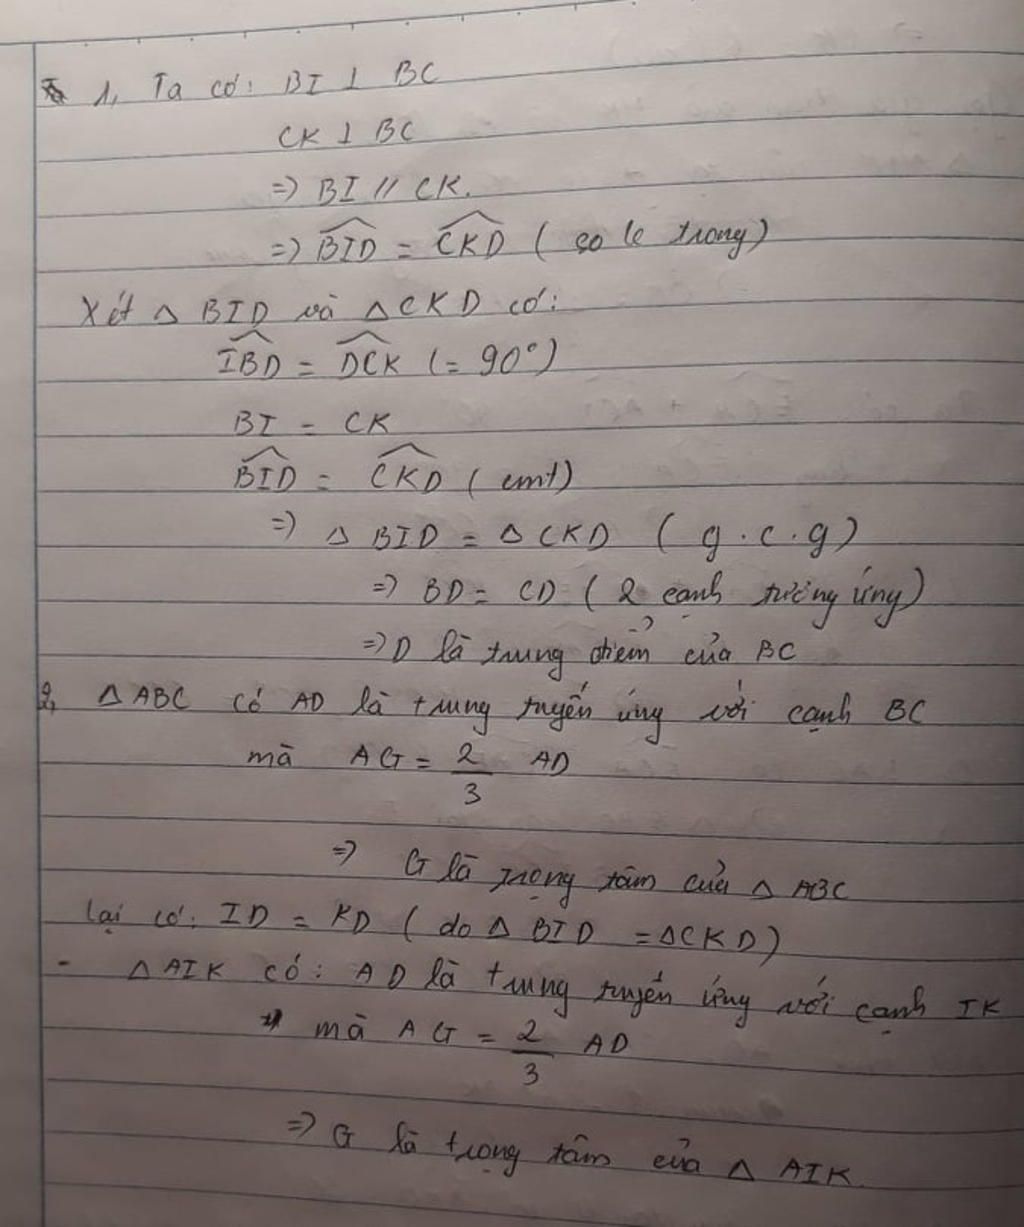 1, Ta có: BI ⊥ BC
CK ⊥ BC
=> BI // CK.
=> \widehat{BID} = \widehat{CKD} (so le trong)
Xét △ BID và △ CKD có:
\widehat{IBD} = \widehat{DCK} (= 90°)
BI = CK
\widehat{BID} = \widehat{CKD} (cmt)
=> △ BID = △ CKD (g.c.g)
=> BD = CD (2 cạnh tương ứng)
=> D là trung điểm của BC
2, △ ABC có AD là trung tuyến ứng với cạnh BC
mà AG = 2/3 AD
=> G là trọng tâm của △ ABC
lại có: ID = KD (do △ BID = △CKD)
- △ AIK có: AD là trung tuyến ứng với cạnh IK
mà AG = 2/3 AD
=> G là trọng tâm của △ AIK